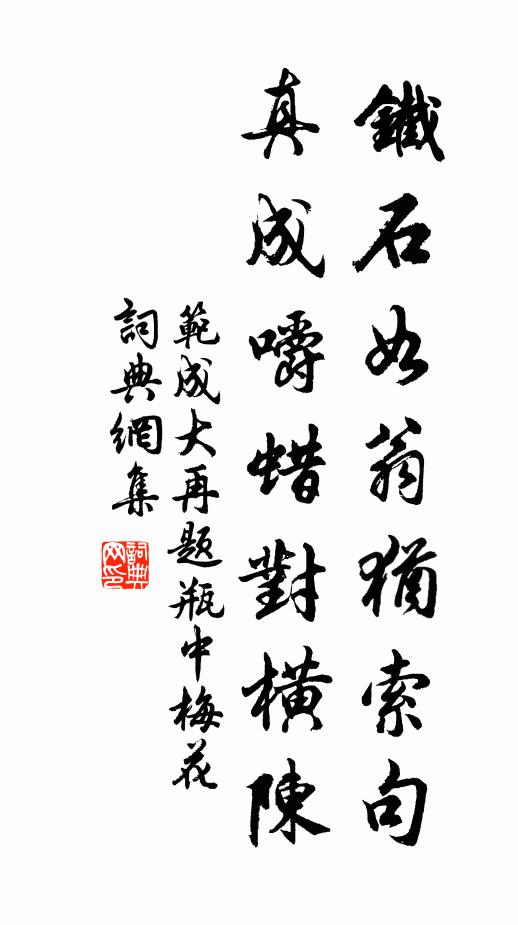 鐵石如翁猶索句
真成嚼蜡對橫陳
範成大再题瓶中梅花
詞典網集
詞典网印